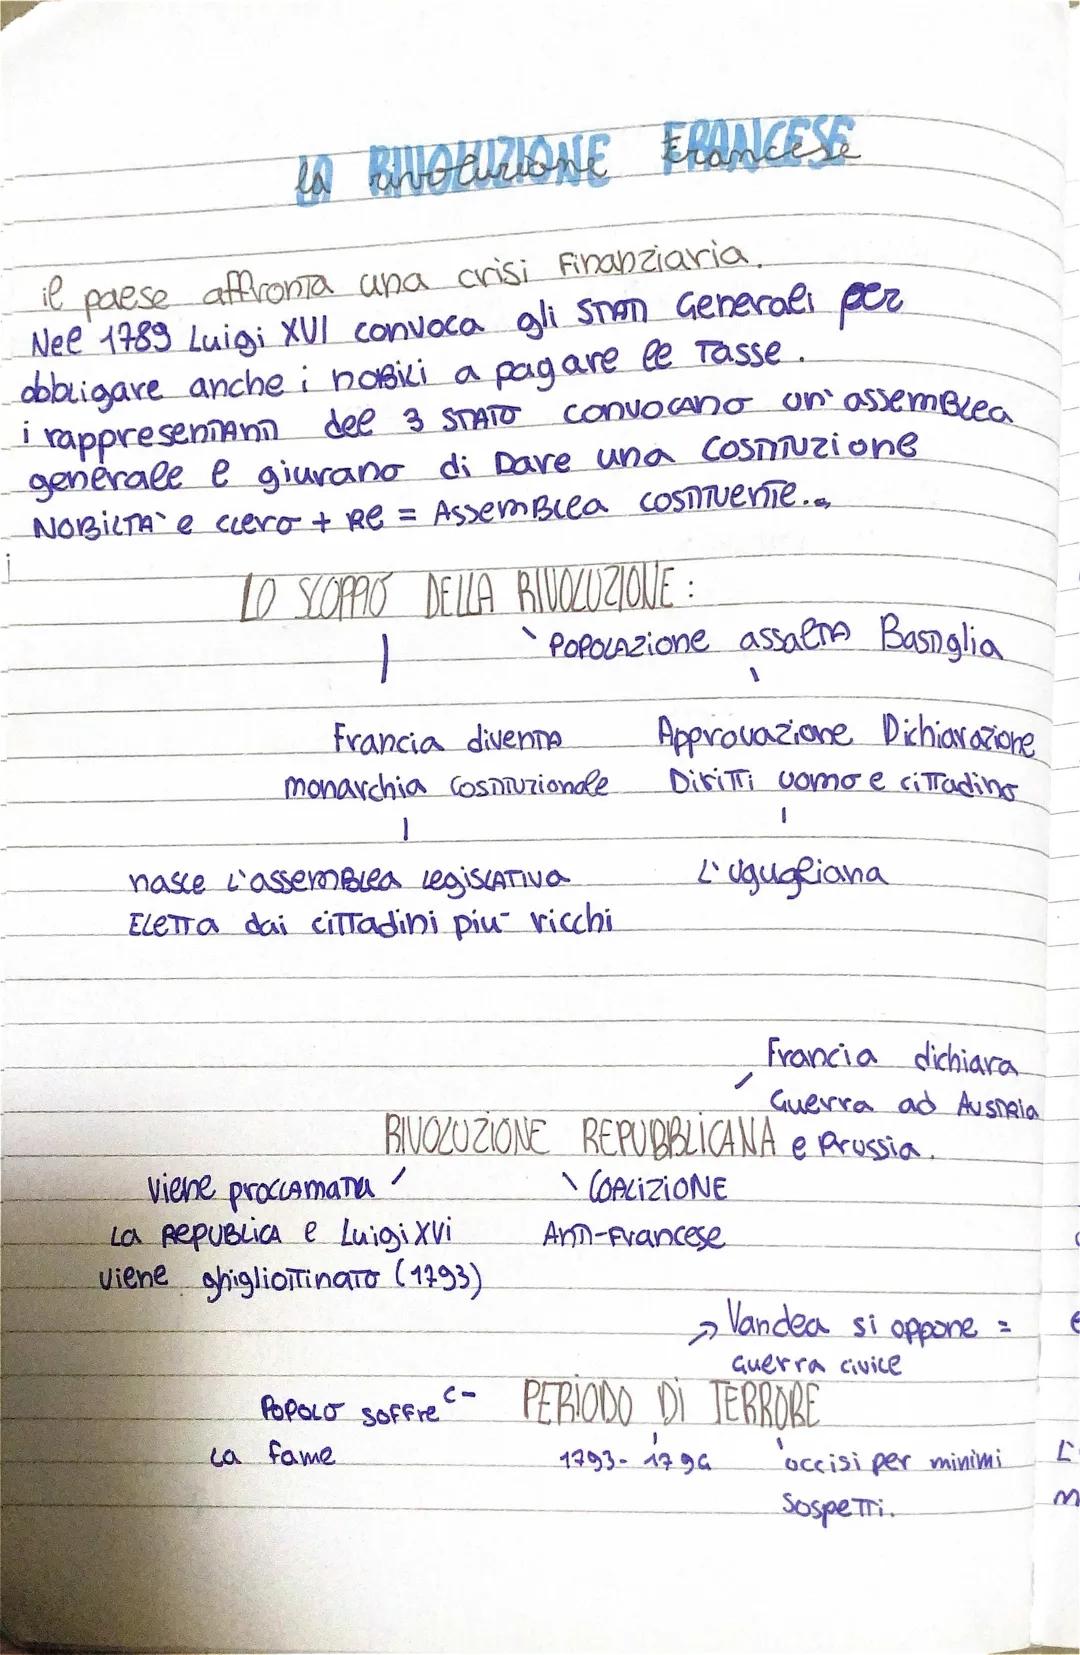 LA RIVOLUZIONE FRANCESE
la rivoluzione francese
il paese affronta una crisi Finanziaria.
Nel 1789 Luigi XVI convoca gli STATI Generali per
obbligare anche i nobili a pagare le Tasse.
i rappresentanti del 3 STATO convocano un'assemblea
generale e giurano di Dare una Costituzione
NOBILTA' e clero + Re = Assemblea costituente.
LO SCOPPIO DELLA RIVOLUZIONE:
POPOLAZIONE assalta Bastiglia
Francia diventa
monarchia Costituzionale
Approvazione Dichiarazione
Diritti uomo e cittadino
nasce l'assemblea legislativa
Eletta dai cittadini piu' ricchi
L'Ugugliana
Francia dichiara
Guerra ad Austria
e Prussia.
RIVOLUZIONE REPUBBLICANA
viene proclamata
la REPUBLICA e Luigi XVI
viene ghigliottinato (1793)
COALIZIONE
Anti-Francese
Vandea si oppone =
Guerra civile
PERIODO DI TERRORE
POPOLO soffre
la fame
1793-1794
occisi per minimi
Sospetti.